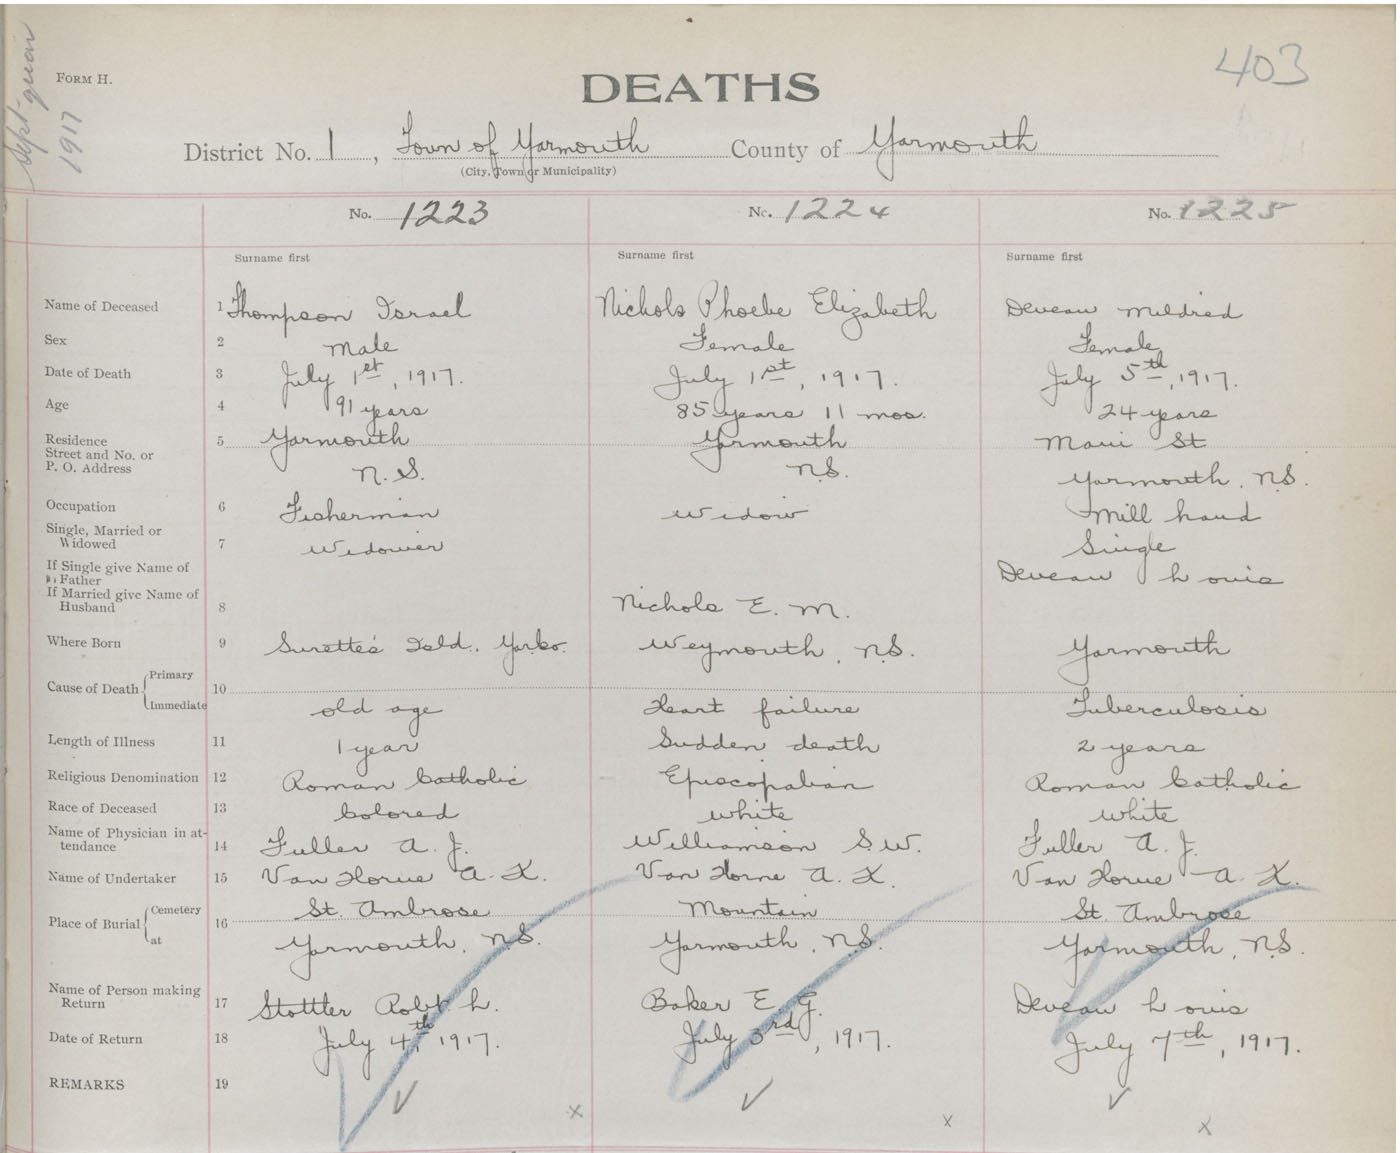 Sept quar
1917
403
FORM H.
DEATHS
District No. 1, Town of Yarmouth County of Yarmouth
(City, Town or Municipality)
No. 1223 No. 1224 No. 1225
Surname first Surname first Surname first
Name of Deceased 1 Thompson Israel Nichols Phoebe Elizabeth Deveau Mildred
Sex 2 Male Female Female
Date of Death 3 July 1st, 1917. July 1st, 1917. July 5th, 1917.
Age 4 91 years 85 years 11 mos. 24 years
Residence 5 Yarmouth Yarmouth Main St
Street and No. or
P. O. Address N.S. N.S. Yarmouth, N.S.
Occupation 6 Fisherman Widow Mill hand
Single, Married or
Widowed 7 Widower Single
If Single give Name of
Father Deveau Louis
If Married give Name of
Husband 8 Nichols E. M.
Where Born 9 Surette's Isld., Yar.Co. Weymouth, N.S. Yarmouth
Cause of Death Primary 10
Immediate old age Heart failure Tuberculosis
Length of Illness 11 1 year Sudden death 2 years
Religious Denomination 12 Roman Catholic Episcopalian Roman Catholic
Race of Deceased 13 Colored White White
Name of Physician in at-
tendance 14 Fuller A. J. Williamson S. W. Fuller A. J.
Name of Undertaker 15 Van Horne A. K. Van Horne A. K. Van Horne A. K.
Place of Burial Cemetery 16 St. Ambrose Mountain St. Ambrose
at Yarmouth, N.S. Yarmouth, N.S. Yarmouth, N.S.
Name of Person making
Return 17 Stottler Robt. L. Baker E. G. Deveau Louis
Date of Return 18 July 4th, 1917. July 3rd, 1917. July 7th, 1917.
REMARKS 19